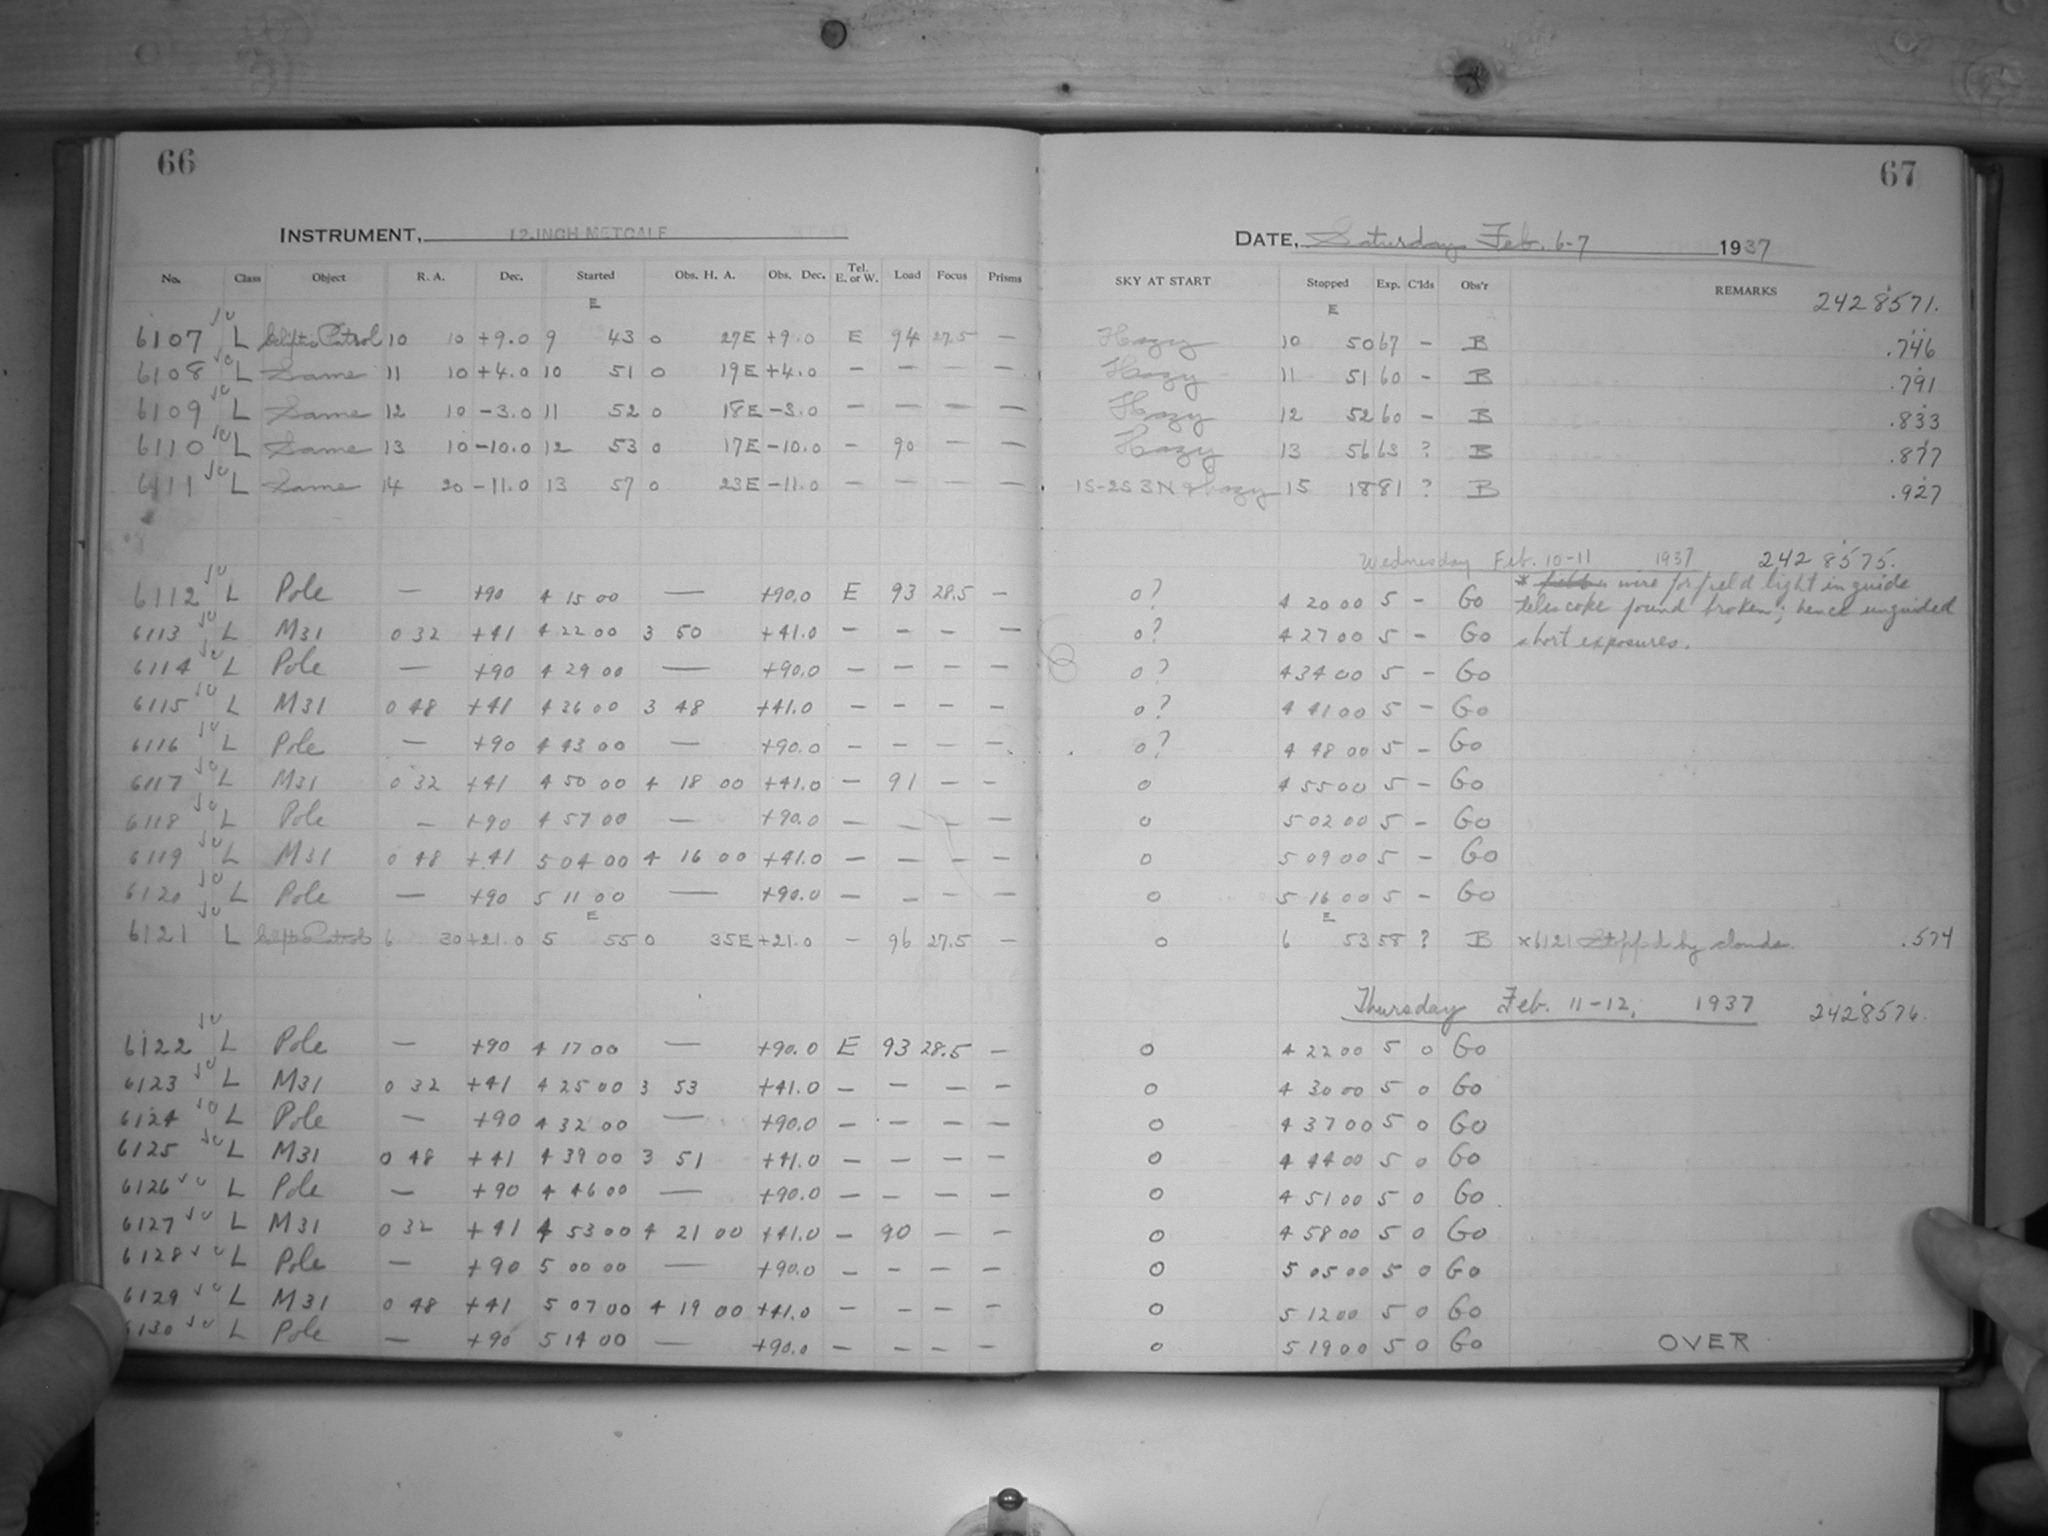 66
INSTRUMENT, 12-INCH METCALF
No. Class Object R. A. Dec. Started Obs. H. A. Obs. Dec. Tel. E. or W. Load Focus Prisms
E
6107 L Ecliptic Patrol 10 10 +9.0 9 43 0 27E +9.0 E 94 27.5 —
6108 L Same 11 10 +4.0 10 51 0 19E +4.0 — — — —
6109 L Same 12 10 -3.0 11 52 0 18E -3.0 — — — —
6110 L Same 13 10 -10.0 12 53 0 17E -10.0 — 90 — —
6111 L Same 14 20 -11.0 13 57 0 23E -11.0 — — — —
6112 L Pole — +90 4 15 00 — +90.0 E 93 28.5 —
6113 L M31 0 32 +41 4 22 00 3 50 +41.0 — — — —
6114 L Pole — +90 4 29 00 — +90.0 — — — —
6115 L M31 0 48 +41 4 36 00 3 48 +41.0 — — — —
6116 L Pole — +90 4 43 00 — +90.0 — — — —
6117 L M31 0 32 +41 4 50 00 4 18 00 +41.0 — 91 — —
6118 L Pole — +90 4 57 00 — +90.0 — — — —
6119 L M31 0 48 +41 5 04 00 4 16 00 +41.0 — — — —
6120 L Pole — +90 5 11 00 — +90.0 — — — —
E
6121 L Ecliptic Patrol 6 30 +21.0 5 55 0 35E +21.0 — 96 27.5 —
6122 L Pole — +90 4 17 00 — +90.0 E 93 28.5 —
6123 L M31 0 32 +41 4 25 00 3 53 +41.0 — — — —
6124 L Pole — +90 4 32 00 — +90.0 — — — —
6125 L M31 0 48 +41 4 39 00 3 51 +41.0 — — — —
6126 L Pole — +90 4 46 00 — +90.0 — — — —
6127 L M31 0 32 +41 4 53 00 4 21 00 +41.0 — 90 — —
6128 L Pole — +90 5 00 00 — +90.0 — — — —
6129 L M31 0 48 +41 5 07 00 4 19 00 +41.0 — — — —
6130 L Pole — +90 5 14 00 — +90.0 — — — —
67
DATE, Saturday Feb. 6-7 1937
SKY AT START Stopped Exp. C'lds Obs'r REMARKS
E 2428571.
Hazy 10 50 67 - B .746
Hazy 11 51 60 - B .791
Hazy 12 52 60 - B .833
Hazy 13 56 63 ? B .877
15-25 3N & hazy 15 18 81 ? B .927
Wednesday Feb. 10-11 1937 2428575.
o? 4 20 00 5 - Go * wire for field light in guide
telescope found broken; hence unguided
o? 4 27 00 5 - Go short exposures.
o? 4 34 00 5 - Go
o? 4 41 00 5 - Go
o? 4 48 00 5 - Go
o 4 55 00 5 - Go
o 5 02 00 5 - Go
o 5 09 00 5 - Go
o 5 16 00 5 - Go
E
o 6 53 58 ? B x6121 Stopped by clouds .574
Thursday Feb. 11-12, 1937 2428576.
o 4 22 00 5 0 Go
o 4 30 00 5 0 Go
o 4 37 00 5 0 Go
o 4 44 00 5 0 Go
o 4 51 00 5 0 Go
o 4 58 00 5 0 Go
o 5 05 00 5 0 Go
o 5 12 00 5 0 Go
o 5 19 00 5 0 Go OVER